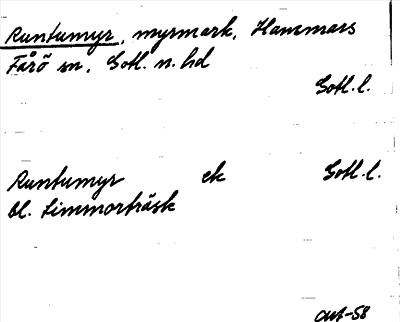 Runtumyr, myrmark, Hammars
Fårö sn, Gotl. n. hd
Gotl. l.
Runtumyr ek Gotl. l.
bl. Limmorträsk